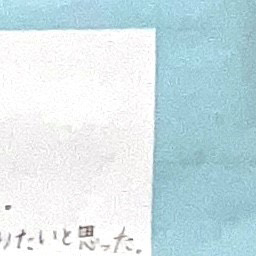 。
りたいと思った。